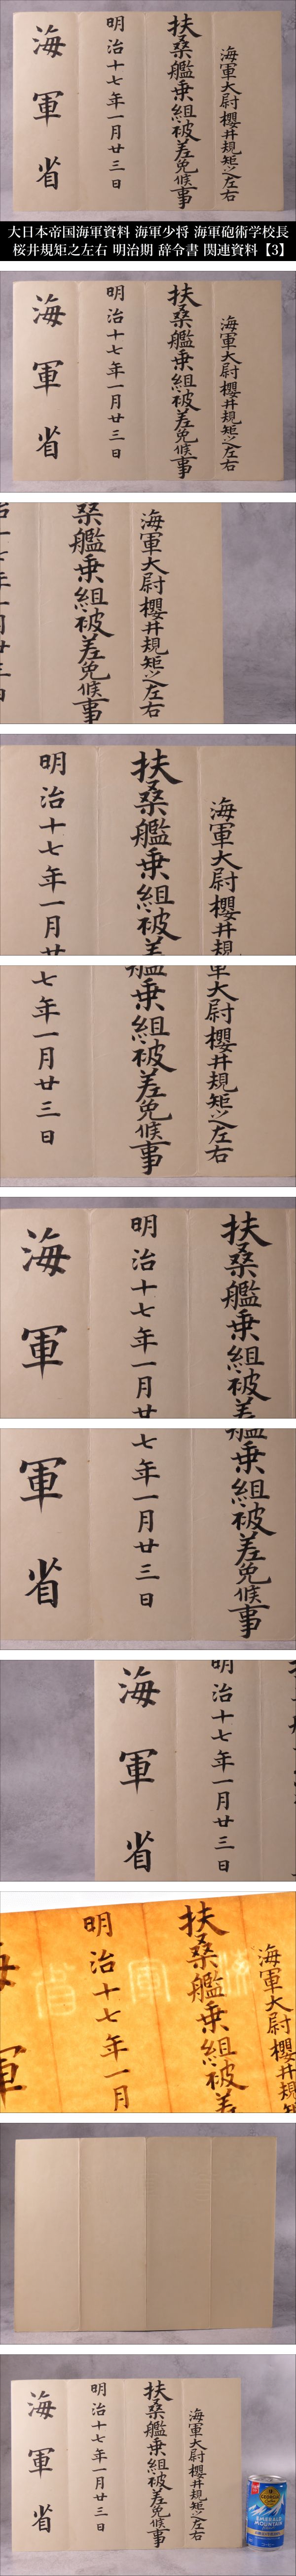 海軍大尉櫻井規矩之左右
扶桑艦乗組被差免候事
明治十七年一月廿三日
海軍省
大日本帝国海軍資料 海軍少将 海軍砲術学校長
桜井規矩之左右 明治期 辞令書 関連資料【3】
海軍大尉櫻井規矩之左右
扶桑艦乗組被差免候事
明治十七年一月廿三日
海軍省
海軍大尉櫻井規矩之左右
桑艦乗組被差免候事
海軍大尉櫻井規
扶桑艦乗組被差
明治十七年一月廿
軍大尉櫻井規矩之左右
艦乗組被差免候事
七年一月廿三日
扶桑艦乗組被差
明治十七年一月廿
海軍
艦乗組被差免候事
七年一月廿三日
軍省
明治十七年一月廿三日
海軍省
海軍大尉櫻井規
扶桑艦乗組被差
明治十七年一月
海軍
海軍省
海軍大尉櫻井規矩之左右
扶桑艦乗組被差免候事
明治十七年一月廿三日
海軍省
GEORGIA
EMERALD
MOUNTAIN